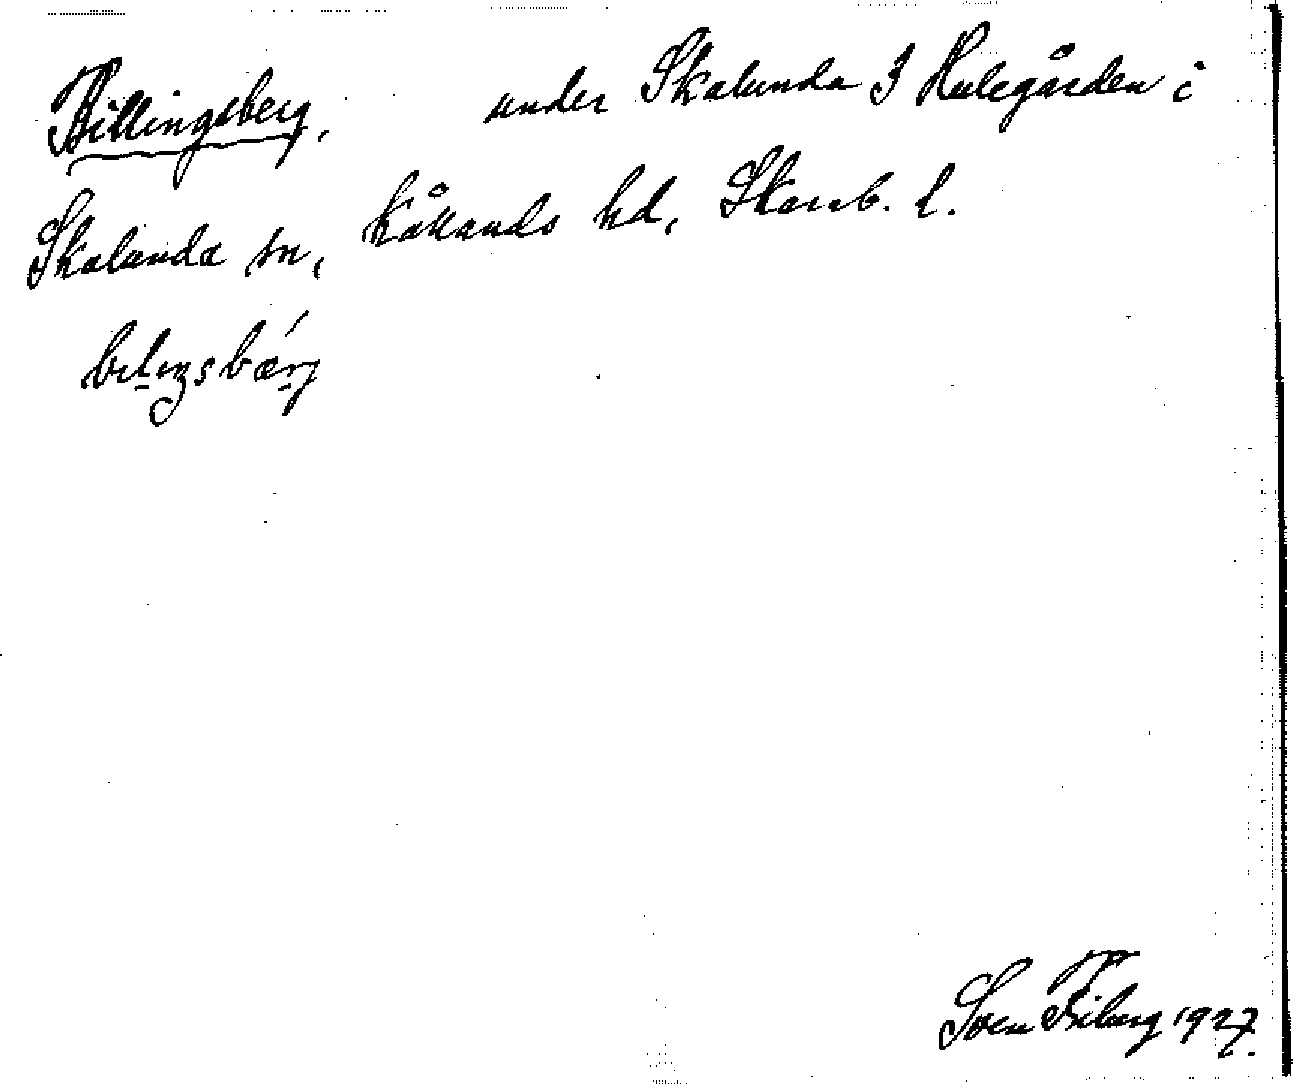 Billingsberg, under Skalunda I Hulegården i
Skalunda sn, Kållands hd, Skarab. l.
bilıŋsbærj
Sven Friberg 1927.